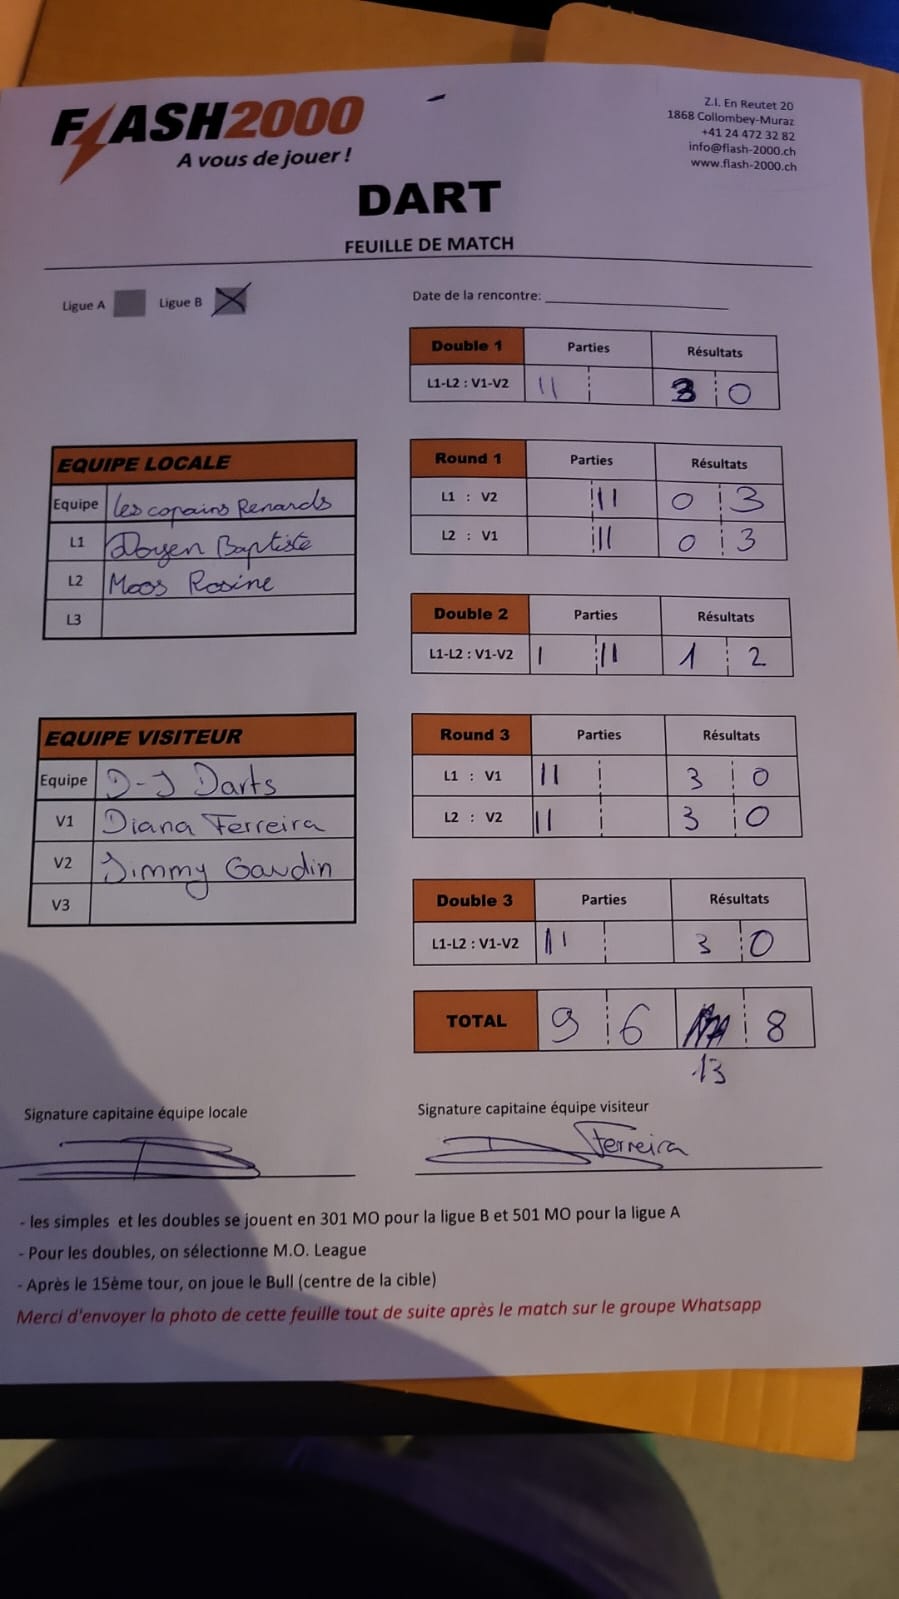 FLASH2000
A vous de jouer !
Z.I. En Reutet 20
1868 Collombey-Muraz
+41 24 472 32 82
info@flash-2000.ch
www.flash-2000.ch
DART
FEUILLE DE MATCH
Ligue A Ligue B X
Date de la rencontre:
Double 1 Parties Résultats
L1-L2 : V1-V2 II 3 0
EQUIPE LOCALE
Equipe Les copains Renards
L1 Doyen Baptiste
L2 Moos Rosine
L3
Round 1 Parties Résultats
L1 : V2 II 0 3
L2 : V1 II 0 3
Double 2 Parties Résultats
L1-L2 : V1-V2 I II 1 2
EQUIPE VISITEUR
Equipe D-J Darts
V1 Diana Ferreira
V2 Jimmy Gaudin
V3
Round 3 Parties Résultats
L1 : V1 II 3 0
L2 : V2 II 3 0
Double 3 Parties Résultats
L1-L2 : V1-V2 II 3 0
TOTAL 9 6 8
13
Signature capitaine équipe locale
Signature capitaine équipe visiteur
Ferreira
- les simples et les doubles se jouent en 301 MO pour la ligue B et 501 MO pour la ligue A
- Pour les doubles, on sélectionne M.O. League
- Après le 15ème tour, on joue le Bull (centre de la cible)
Merci d'envoyer la photo de cette feuille tout de suite après le match sur le groupe Whatsapp